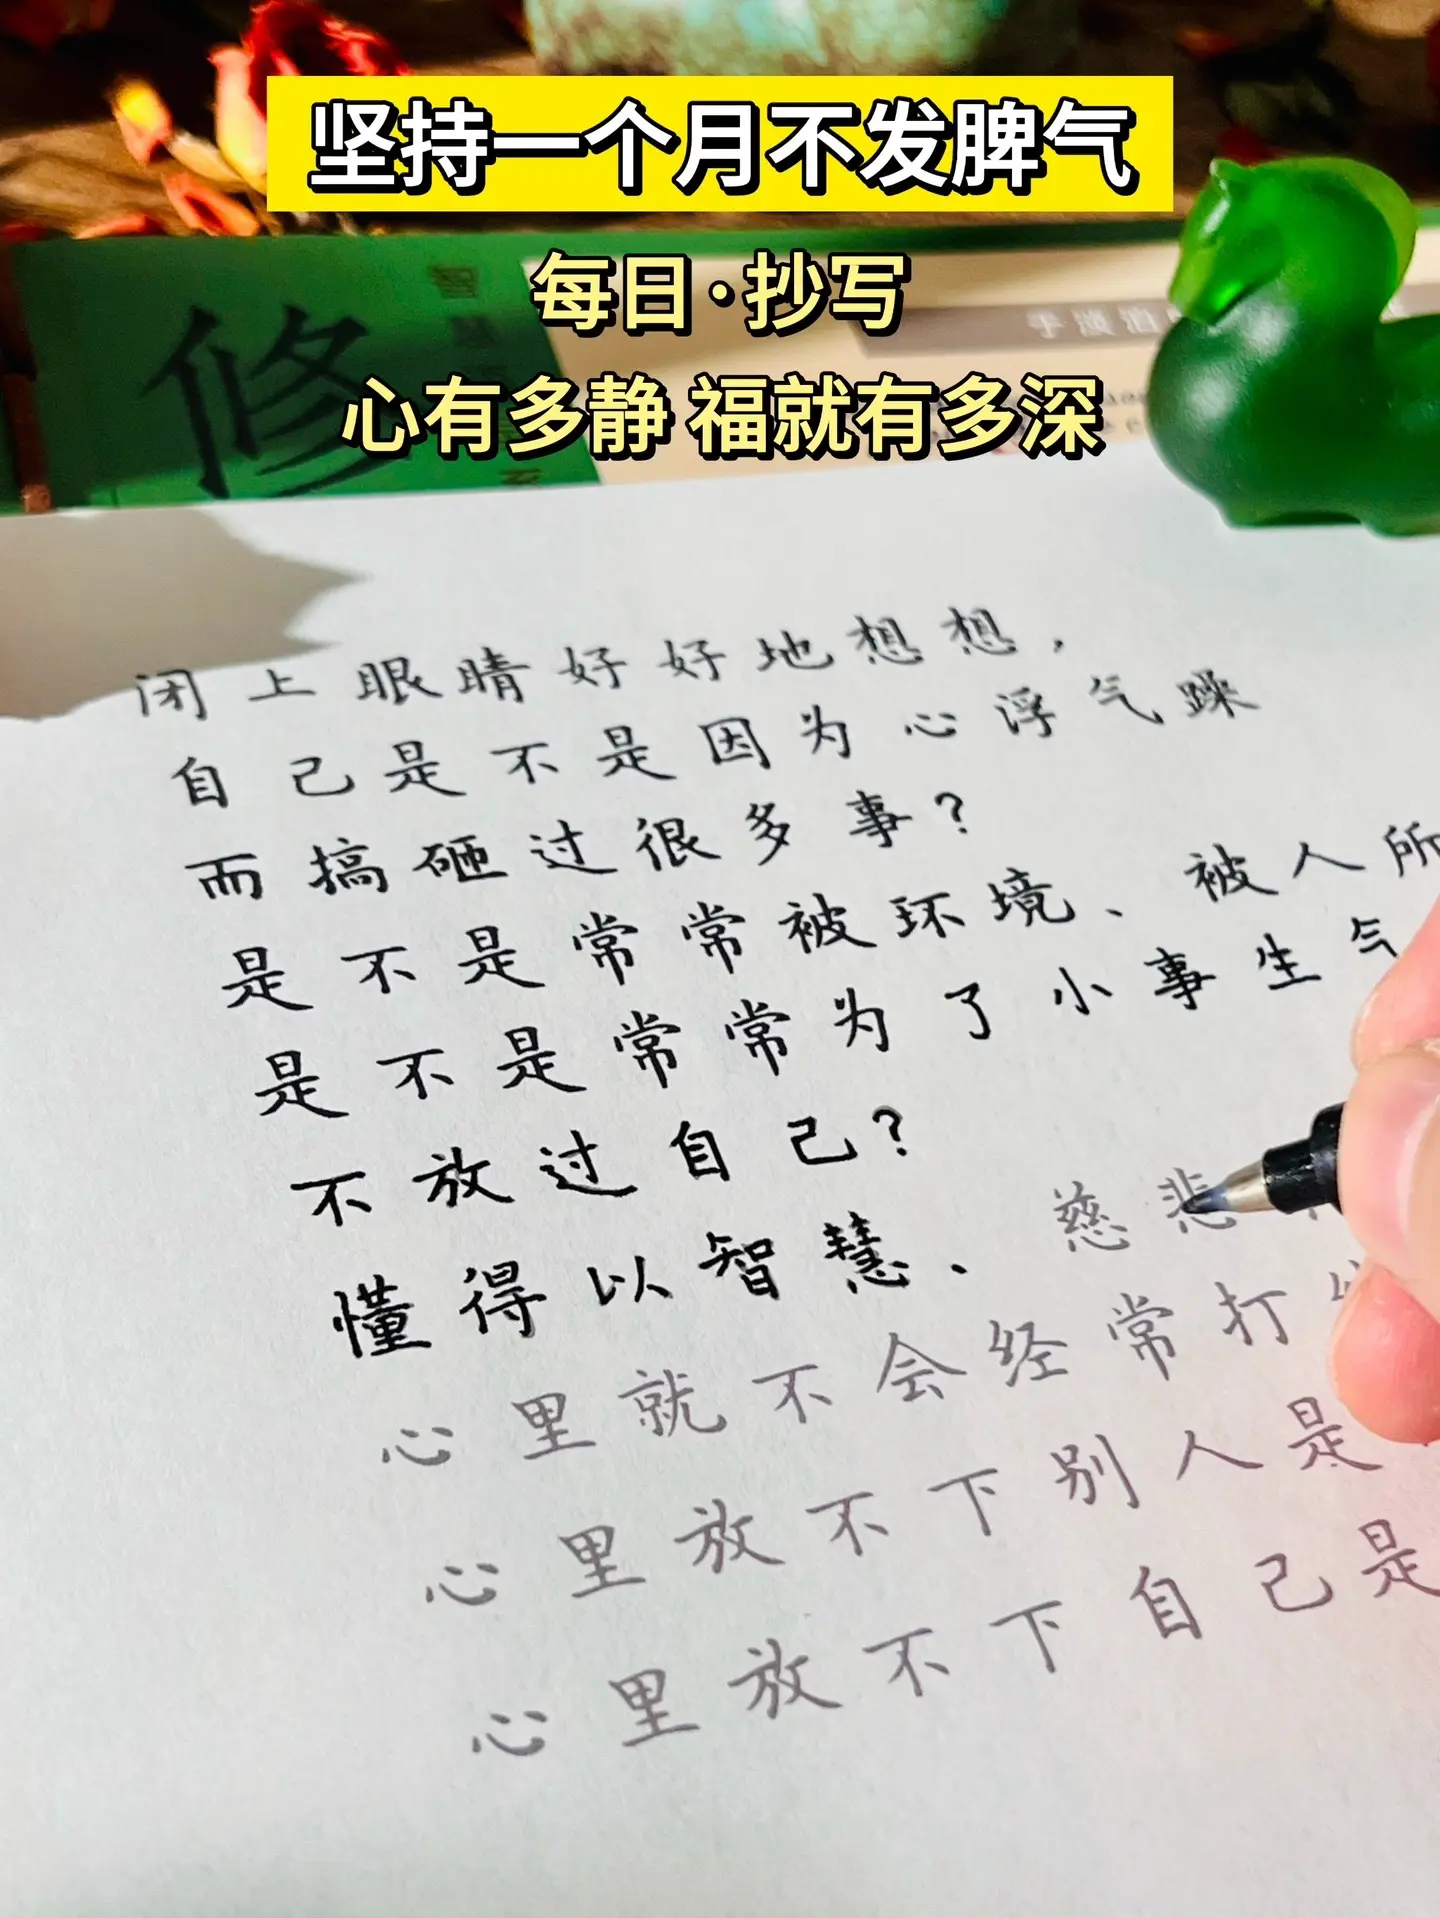 坚持一个月不发脾气
每日·抄写
心有多静 福就有多深
修
闭上眼睛好好地想想,
自己是不是因为心浮气躁
而搞砸过很多事?
是不是常常被环境、被人所
是不是常常为了小事生气
不放过自己?
懂得以智慧、慈悲
心里就不会经常打
心里放不下别人是
心里放不下自己是